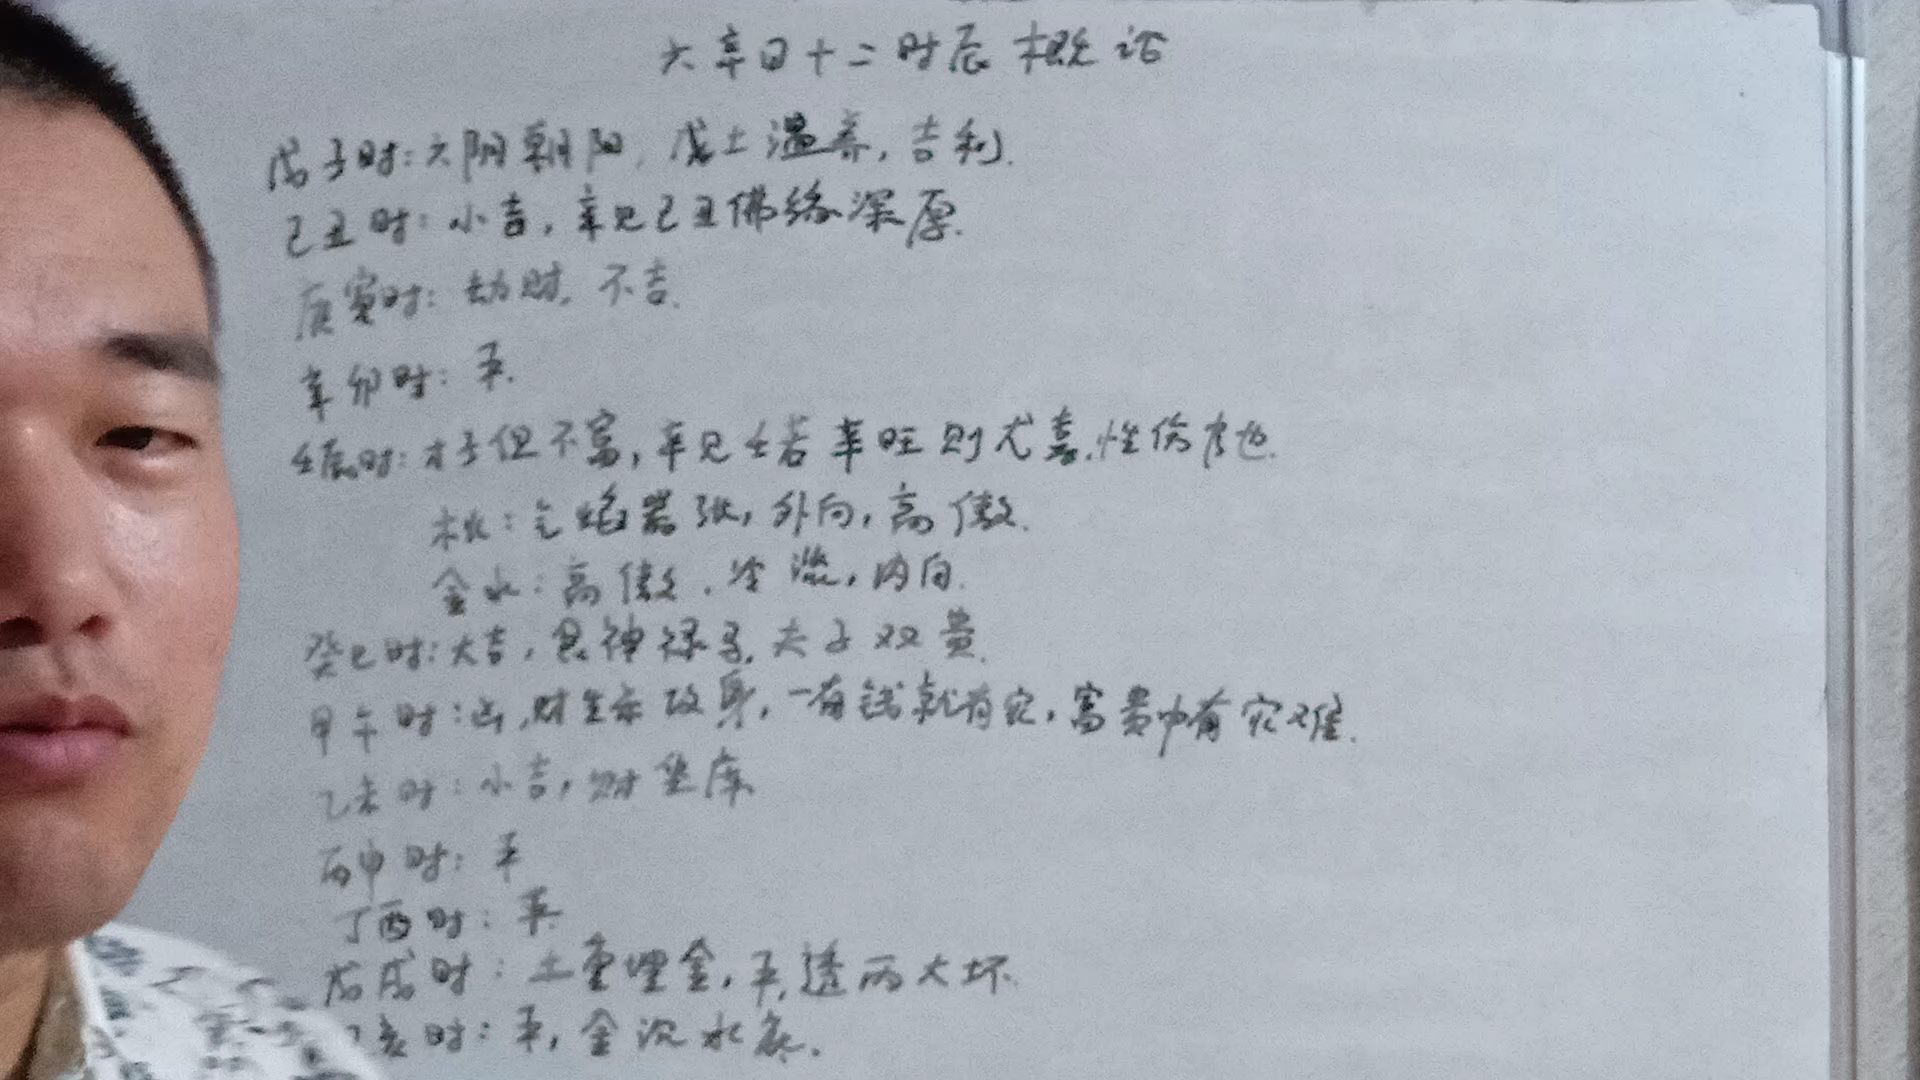 六辛日十二时辰概论
戊子时：六阴朝阳，戊土温养，吉利.
己丑时：小吉，辛见己丑佛缘深厚.
庚寅时：劫财，不吉.
辛卯时：平.
壬辰时：才子但不富，辛见壬若辛旺则尤喜.性伤官也.
木火：气焰嚣张，外向，高傲.
金水：高傲，冷淡，内向.
癸巳时：大吉，食神禄马，夫子双贵.
甲午时：凶，财生杀攻身，一有钱就有灾，富贵中有灾难.
乙未时：小吉，财坐库
丙申时：平
丁酉时：平.
戊戌时：土重埋金，平，透丙大坏.
亥时：平，金沉水底.